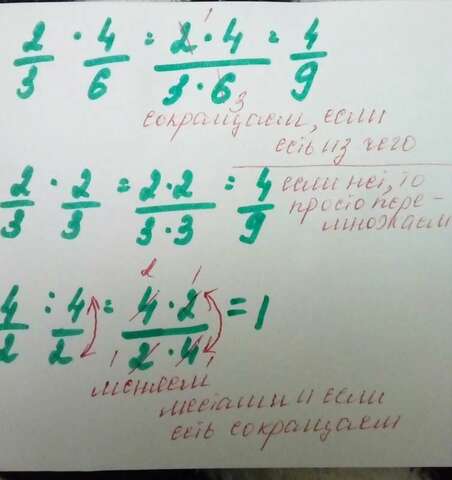 2/3 · 4/6 = 2 · 4 / 3 · 6 = 4/9
1
3
сокращаем, если
есть из чего
2/3 · 2/3 = 2·2 / 3·3 = 4/9
если нет, то
просто пере-
множаем
4/2 : 4/2 = 4 · 2 / 2 · 4 = 1
2 1
1 1
меняем
местами и если
есть сокращаем